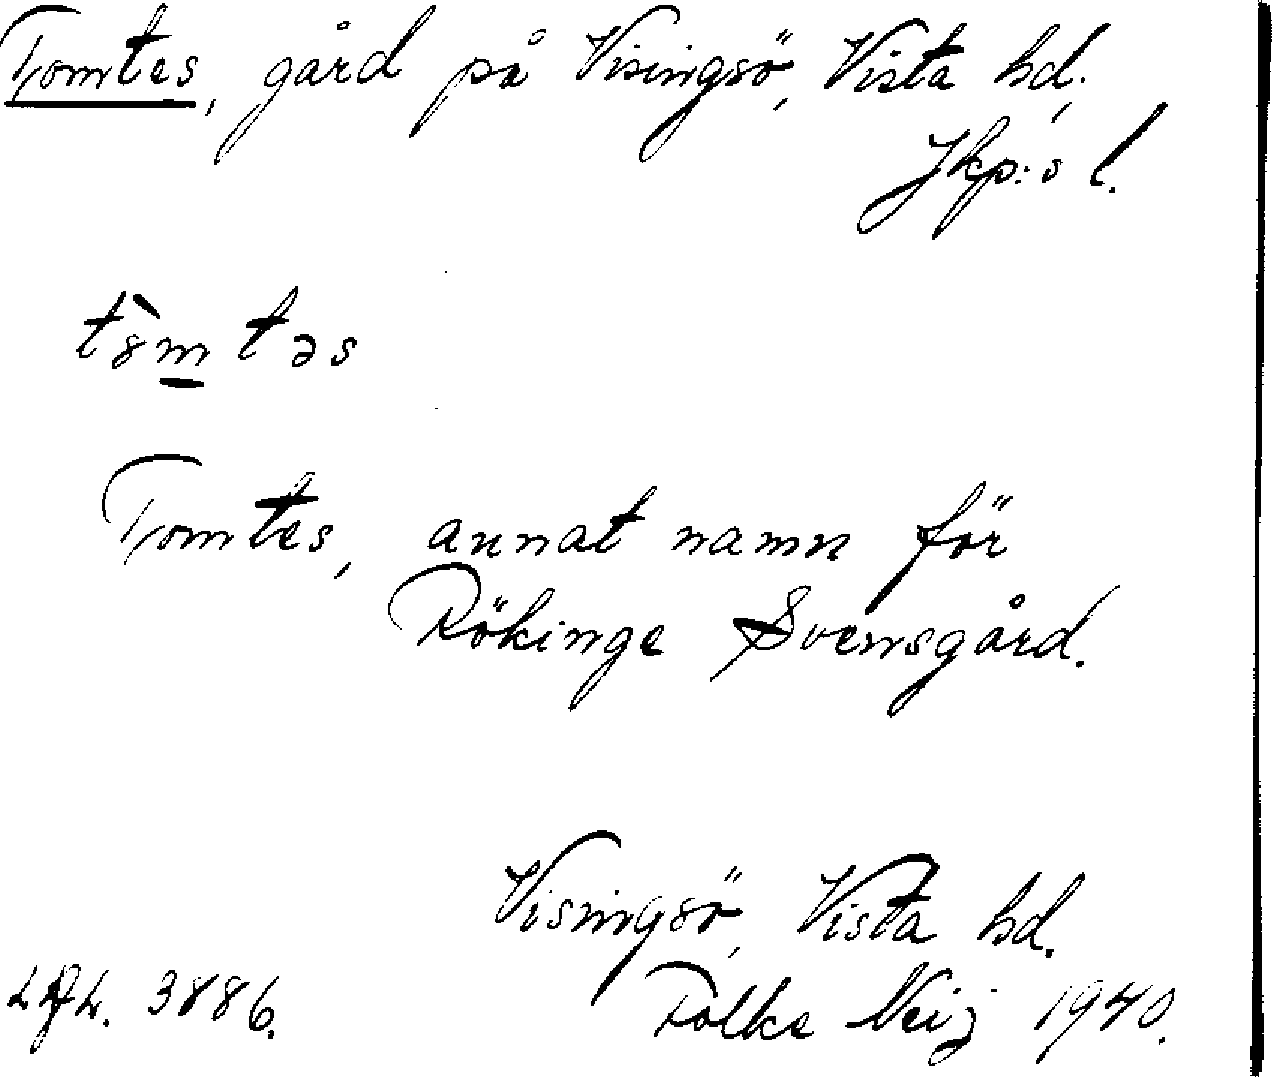 Tomtes, gård på Visingsö, Vista hd,
Jkp:s l.
tòm̲təs
Tomtes, annat namn för
Rökinge Svensgård.
Visingsö, Vista hd.
3886.
Folke Neij 1940.